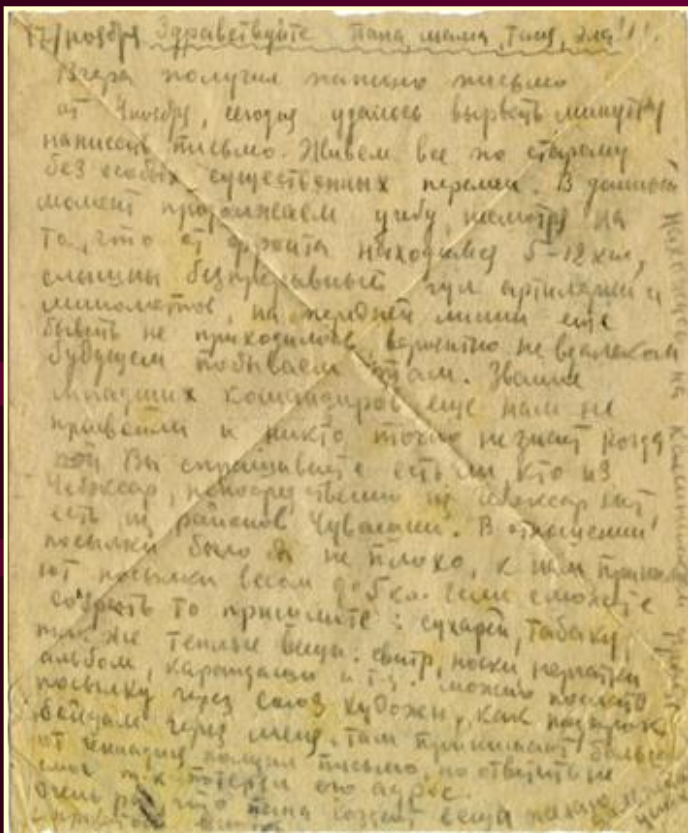 17/ноября Здравствуйте папа, мама, Таня, Эля!!!
Вчера получил письмо
от 4 ноября, сегодня удалось вырвать минутку
написать письмо. Живем все по старому
без особых существенных перемен. В данный
момент продолжаем учебу, несмотря на
то, что от фронта находимся 5-12 км,
слышны безпрерывный гул артиллерии и
минометов, на передней линии еще
бывать не приходилось вероятно не вдалеком
будущем побываем там. Звание
младших командиров еще нам не
и никто точно не знает когда
Вы спрашиваете есть ли кто из
Чебоксар, непосредственно из Чебоксар нет
есть из районов Чувашии. В отношении
посылки было б не плохо, к нам
ют посылки весом до 5 кг. если сможете
собрать то пришлите: сухарей, табаку,
так же теплые вещи: свитр, носки перчатки
альбом, карандаши и т.д. можно послать
посылку через союз художн, как подарок
бойцам через меня. Там принимают больше
от Геннадия получил письмо, но ответить не
смог т.к потерял его адрес.
Очень рад что папа создает вещи
Нахожусь на Калининском фронте